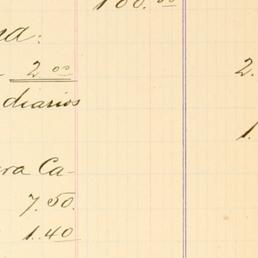 100.00
na:
2 00
2.
diarios
1.
ra Ca-
7.50.
1.40